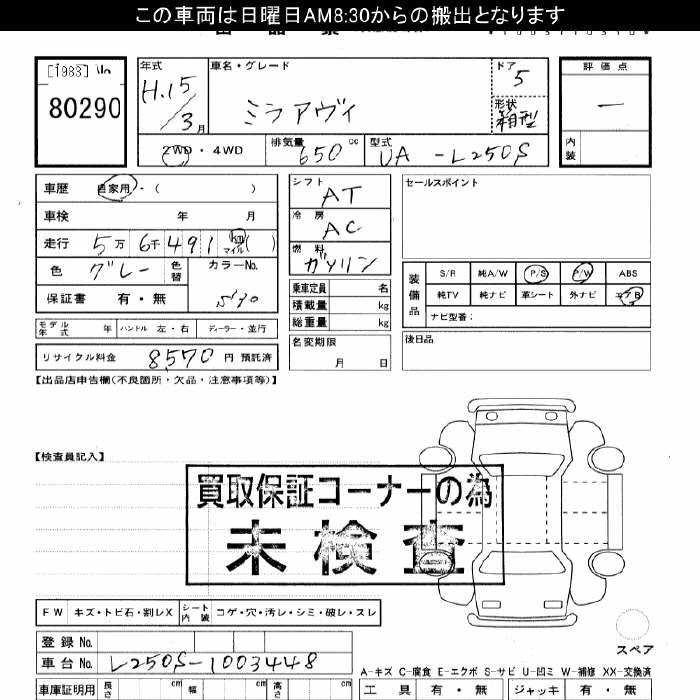 この車両は日曜日AM8:30からの搬出となります
[1983]
80290
年式
H.15/3月
車名・グレード
ミラアヴィ
ドア
5
形状
箱型
評価点
―
内装
2WD・4WD
排気量
650cc
型式
UA-L250S
車歴 自家用・( )
車検 年 月
走行 5万6千491 km マイル ( )
色 グレー 色替 カラーNo. S70
保証書 有・無
シフト AT
冷房 AC
燃料 ガソリン
乗車定員 名
積載量 kg
総重量 kg
セールスポイント
装備品
S/R 純A/W P/S P/W ABS
純TV 純ナビ 革シート 外ナビ エアB
ナビ型番:
モデル年式 年 ハンドル 左・右 ディーラー・並行
名変期限 月 日
後日品
リサイクル料金 8570 円 預託済
【出品店申告欄(不良箇所・欠品・注意事項等)】
【検査員記入】
買取保証コーナーの為
未検査
FW キズ・トビ石・割レX シート内装 コゲ・穴・汚レ・シミ・破レ・スレ
スペア
登録No.
車台No. L250S-1003448
A-キズ C-腐食 E-エクボ S-サビ U-凹ミ W-補修 XX-交換済
車庫証明用 長さ cm 幅 cm 高さ cm
工具 有・無 ジャッキ 有・無